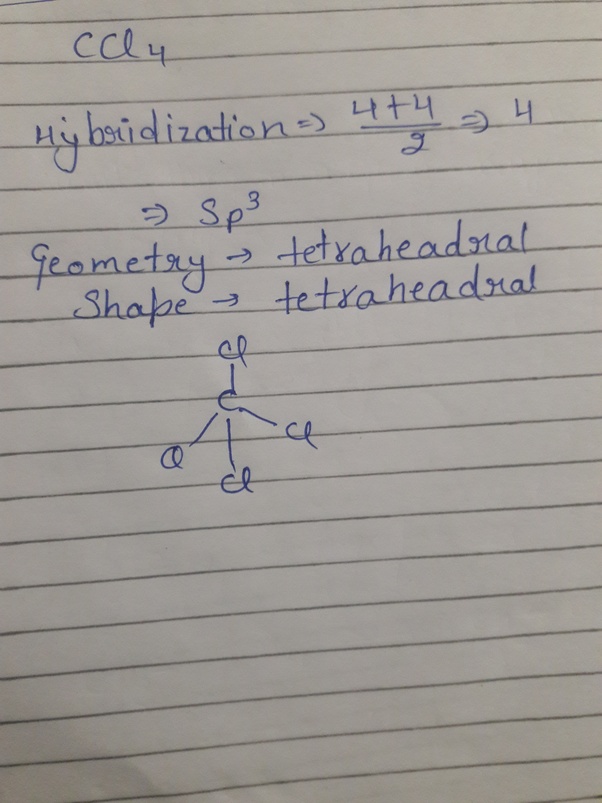 CCl4
Hybridization ⇒ 4+4/2 ⇒ 4
⇒ Sp³
Geometry → tetraheadral
Shape → tetraheadral
Cl
C
Cl
Cl
Cl